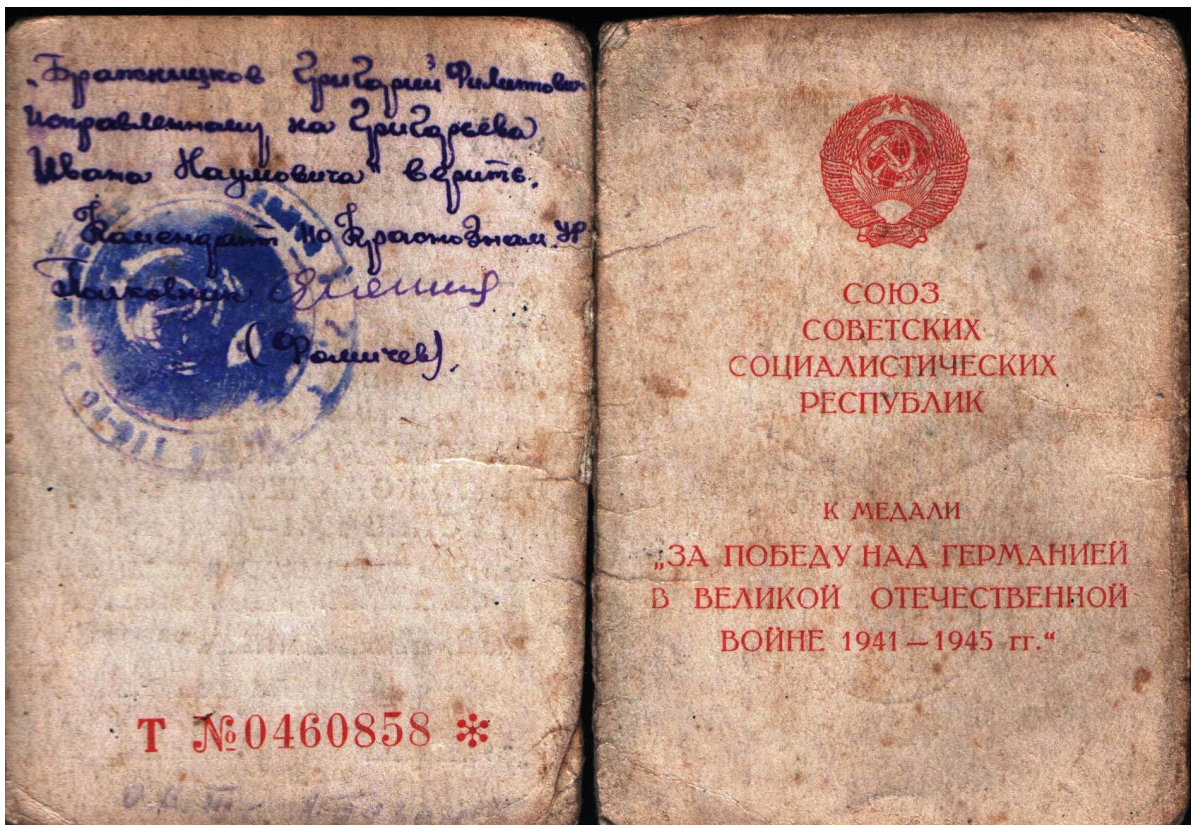 „Бражницков Григорий Филиппович
Исправленному на Григорьева
Ивана Наумовича" верить.
Комендант по Краснознам. УР
Полковник
(Фомичев).
04911
Т №0460858 *
СОЮЗ
СОВЕТСКИХ
СОЦИАЛИСТИЧЕСКИХ
РЕСПУБЛИК
К МЕДАЛИ
„ЗА ПОБЕДУ НАД ГЕРМАНИЕЙ
В ВЕЛИКОЙ ОТЕЧЕСТВЕННОЙ
ВОЙНЕ 1941—1945 гг.“